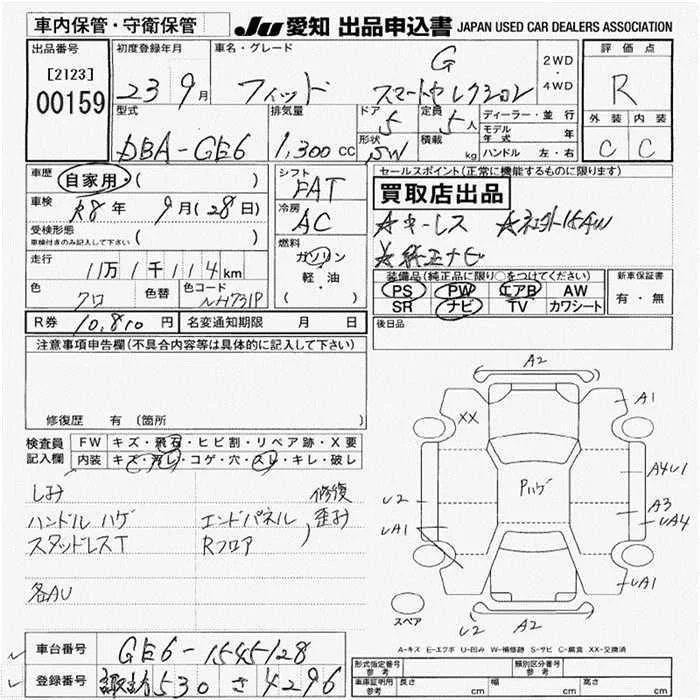 車内保管・守衛保管
JU 愛知 出品申込書 JAPAN USED CAR DEALERS ASSOCIATION
出品番号
[2123]
00159
初度登録年月
23 9月
車名・グレード
フィット G
スマートセレクション
2WD
・
4WD
評価点
R
外装 内装
C C
型式
DBA-GE6
排気量
1,300 cc
ドア 5
定員 5人
形状 5W
積載 kg
ディーラー・並行
モデル年式 年
ハンドル 左・右
車歴
自家用・( )
車検
R8年 9月(28日)
受検形態
車検付きのみ記入して下さい ( )
走行
11万1千114km
色
クロ
色替
色コード
NH731P
シフト
FAT
冷房
AC
燃料
ガソリン
軽・油
( )
セールスポイント(正常に機能するものに限ります)
買取店出品
☆キーレス ☆社外15AW
☆純正ナビ
装備品(純正品に限り○をつけてください)
PS PW エアB AW
SR ナビ TV カワシート
新車保証書
有・無
R券 10,810円
名変通知期限 月 日
後日品
注意事項申告欄(不具合内容等は具体的に記入して下さい)
修復歴 有 (箇所 )
検査員
記入欄
FW キズ・飛石・ヒビ割・リペア跡・X要
内装 キズ・汚レ・コゲ・穴・スレ・キレ・破レ
しみ
ハンドル ハゲ
スタッドレスT
各AU
エンドパネル
Rフロア
修復
歪み
A2
A1
XX
Pハゲ
A4U1
A3
UA4
U2
UA1
UA1
スペア
U2
A2
A-キズ E-エクボ U-凹み W-補修跡 S-サビ C-腐食 XX-交換済
車台番号
GE6-1545128
登録番号
諏訪 530 さ 4296
形式指定番号
参考
類別区分番号
参考
車庫証明用
参考
長さ cm
幅 cm
高さ cm